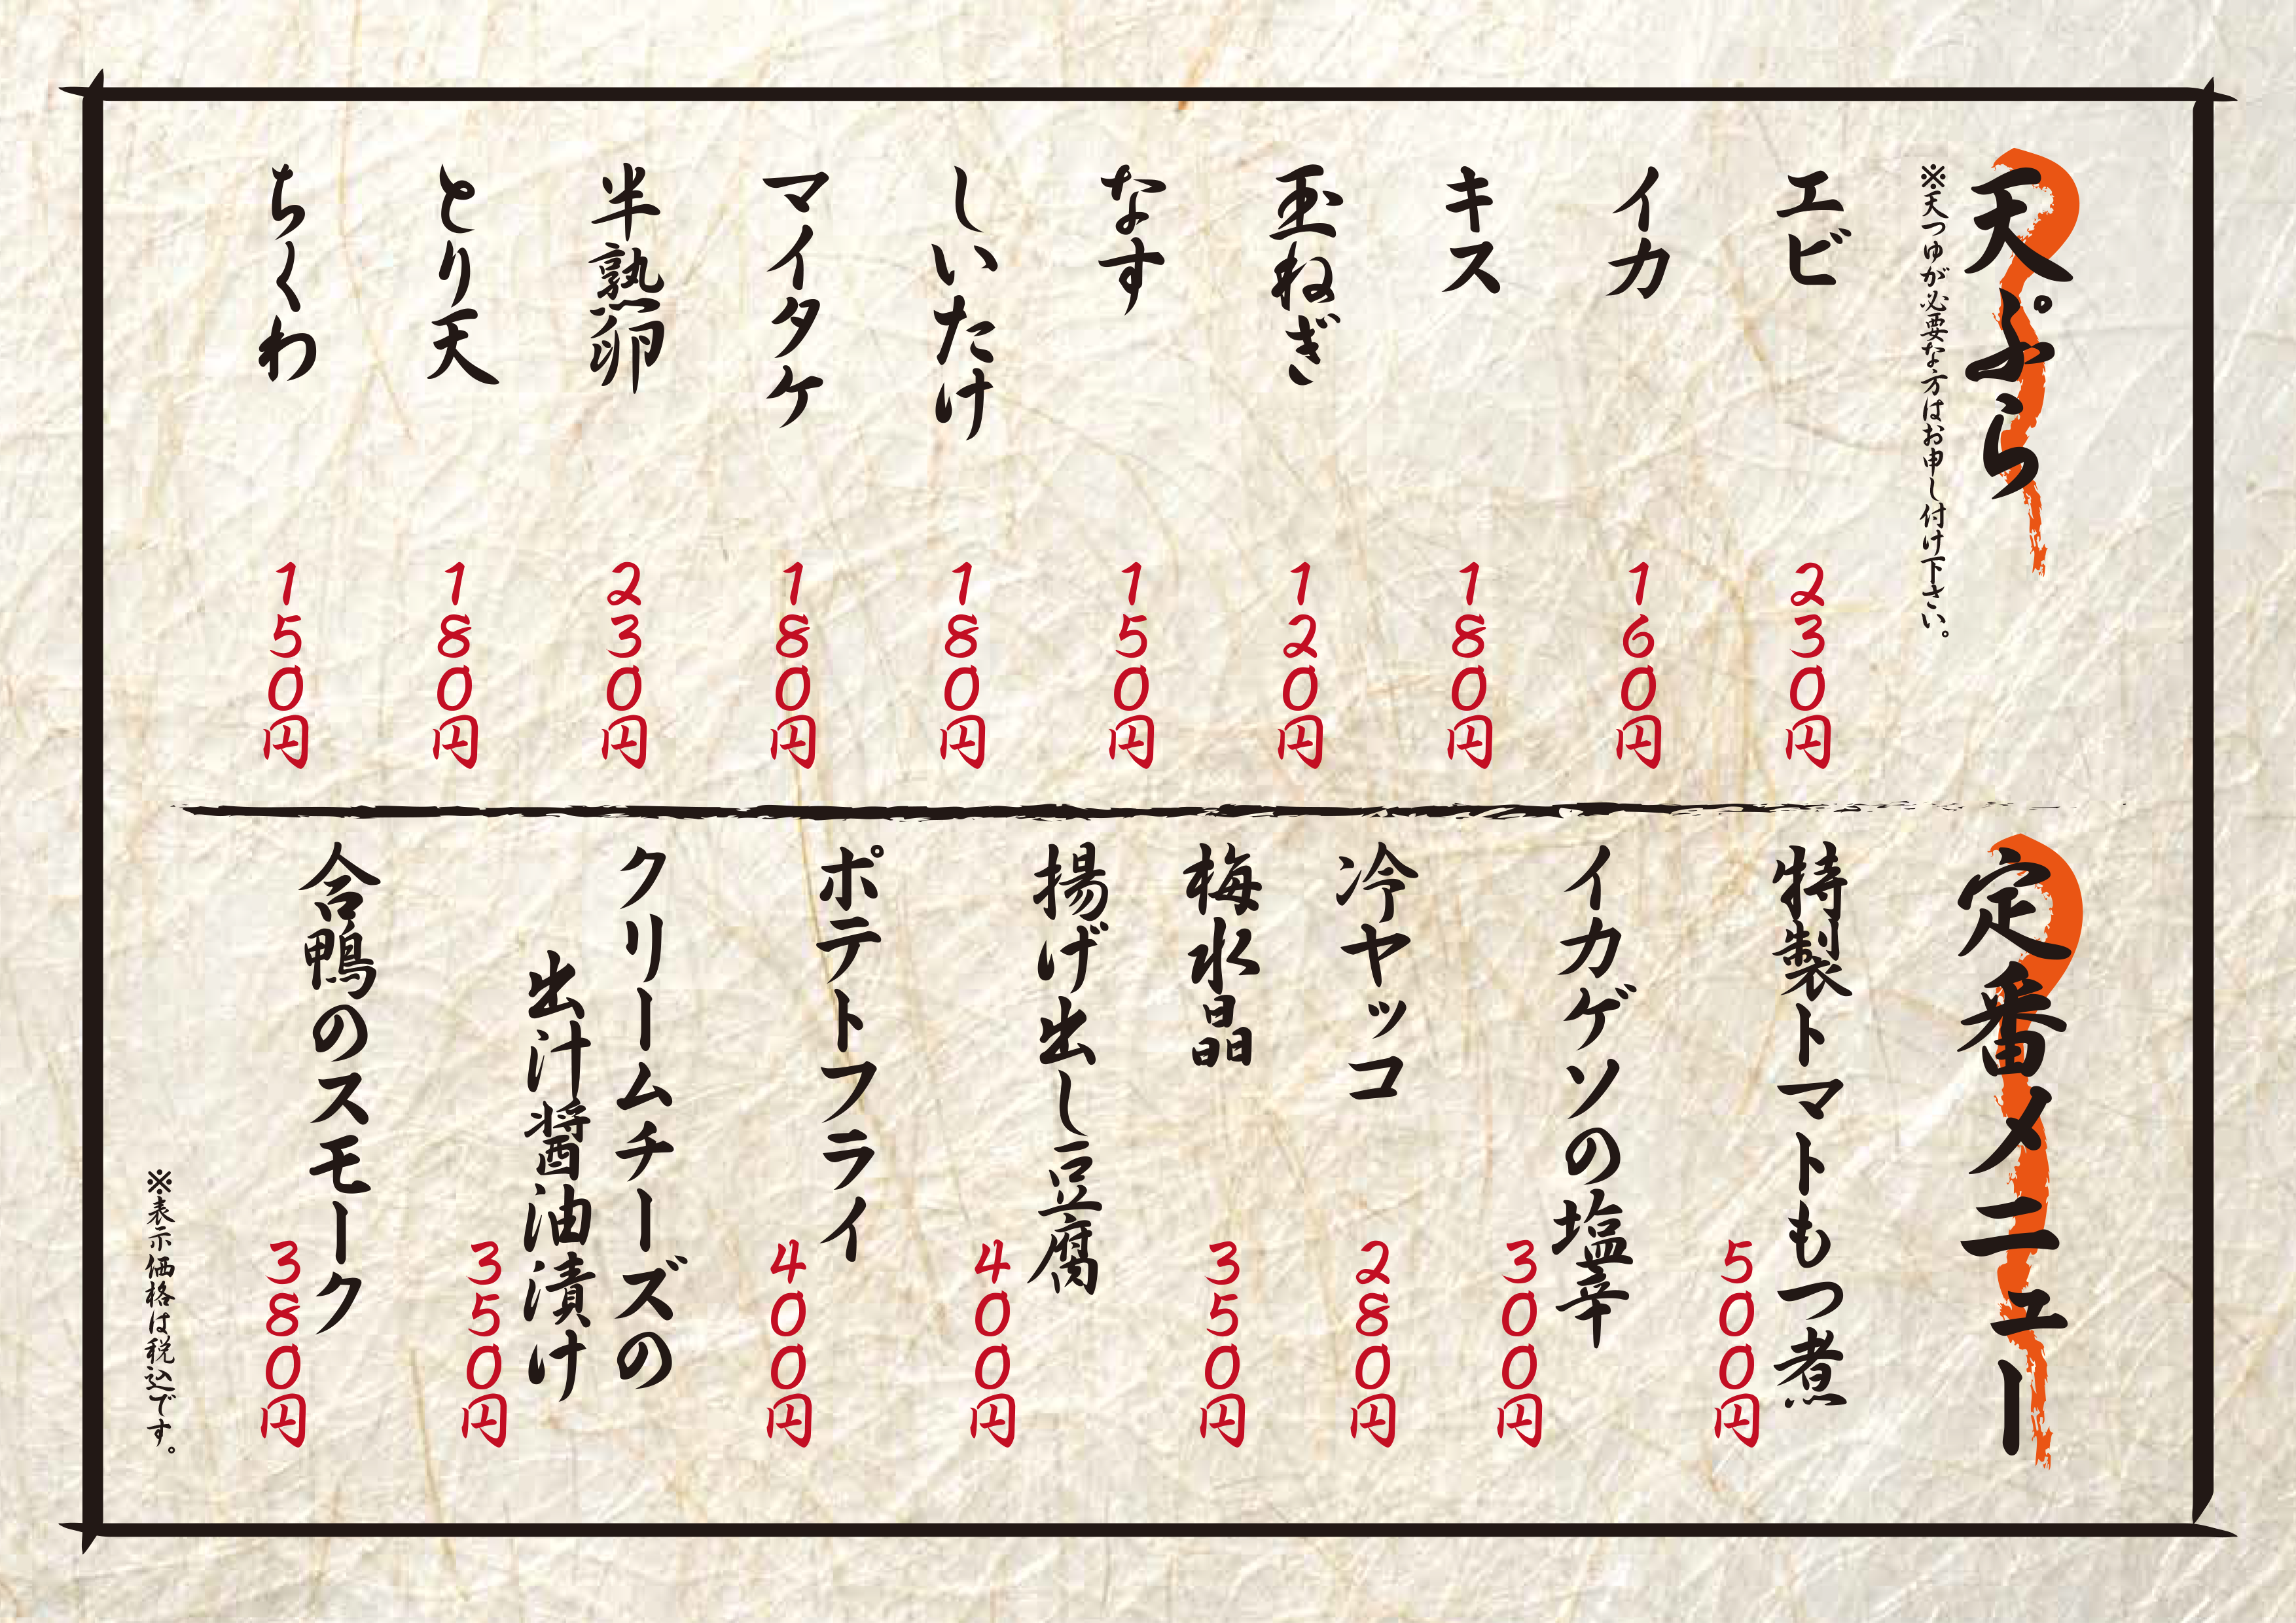 天ぷら
※天つゆが必要な方はお申し付け下さい。
エビ
230円
イカ
160円
キス
180円
玉ねぎ
120円
なす
150円
しいたけ
180円
マイタケ
180円
半熟卵
230円
とり天
180円
ちくわ
150円
定番メニュー
特製トマトもつ煮
500円
イカゲソの塩辛
300円
冷ヤッコ
280円
梅水晶
350円
揚げ出し豆腐
400円
ポテトフライ
400円
クリームチーズの
出汁醤油漬け
350円
合鴨のスモーク
380円
※表示価格は税込です。